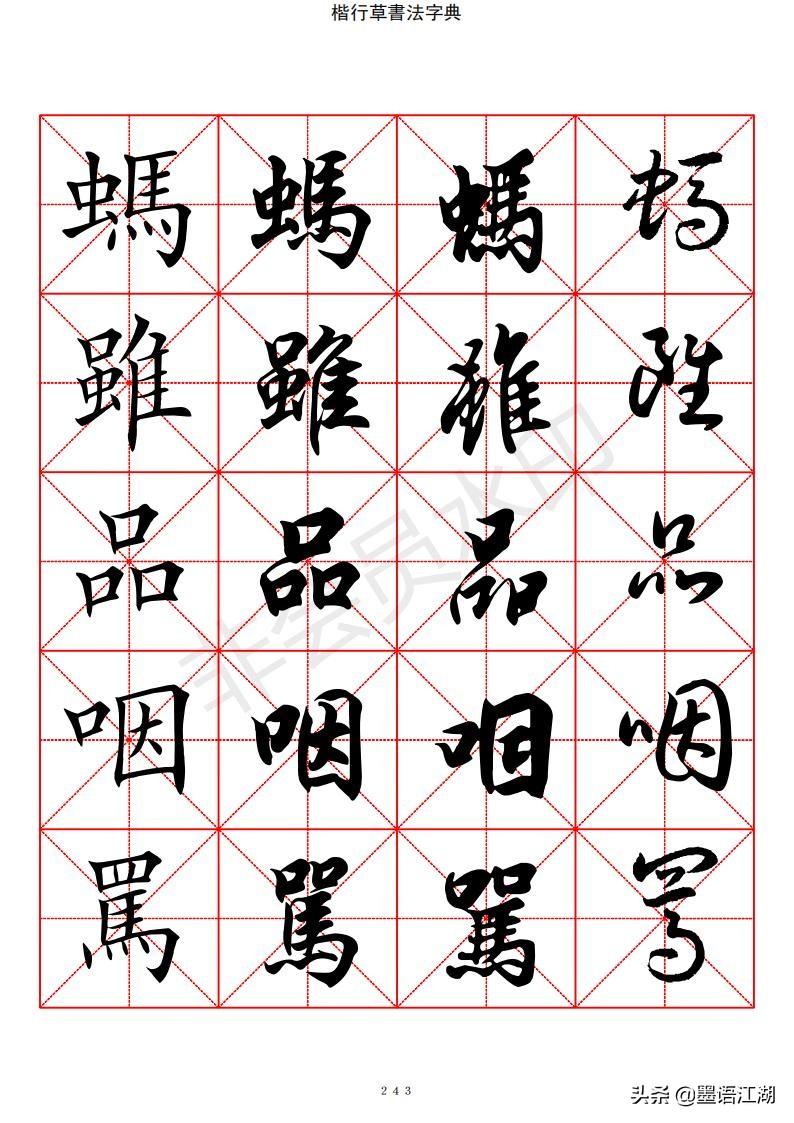 楷行草書法字典
螞 螞 螞 螞
雖 雖 雖 雖
品 品 品 品
咽 咽 咽 咽
罵 罵 罵 罵
非会员水印
243
头条 @墨语江湖